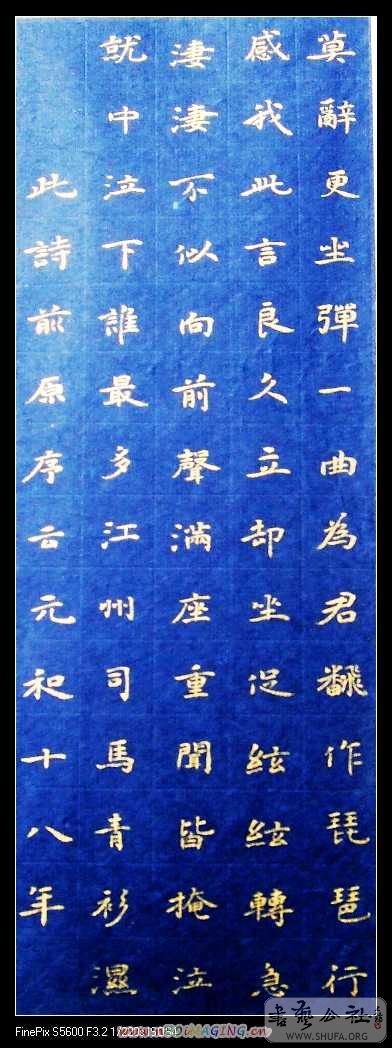 莫辭更坐彈一曲為君飜作琵琶行
感我此言良久立却坐促絃絃轉急
淒淒不似向前聲滿座重聞皆掩泣
就中泣下誰最多江州司馬青衫濕
此詩前原序云元和十八年
FinePix S5600 F3.2
書藝公社
WWW.SHUFA.ORG.CN